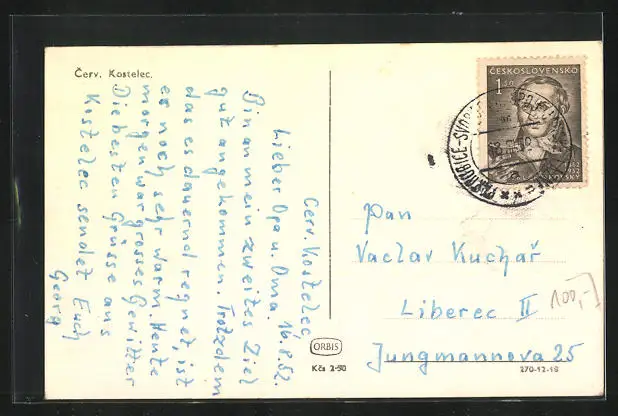 Červ. Kostelec.
Červ. Kostelec
16.8.52.
Lieber Opa u. Oma.
Bin an mein zweites Ziel
gut angekommen. Trotzdem
das es dauernd regnet, ist
es noch sehr warm. Heute
morgen war grosses Gewitter
Die besten Grüsse aus
Kostelec sendet Euch
Georg
ČESKOSLOVENSKO
1 50
Pan
Vaclav Kuchař
Liberec II
Jungmannova 25
100,-
ORBIS
Kčs 2·50
270-12-18